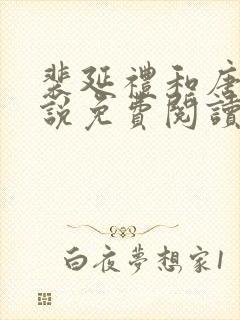 裴延禮和唐
說免費閱讀
白夜夢想家1